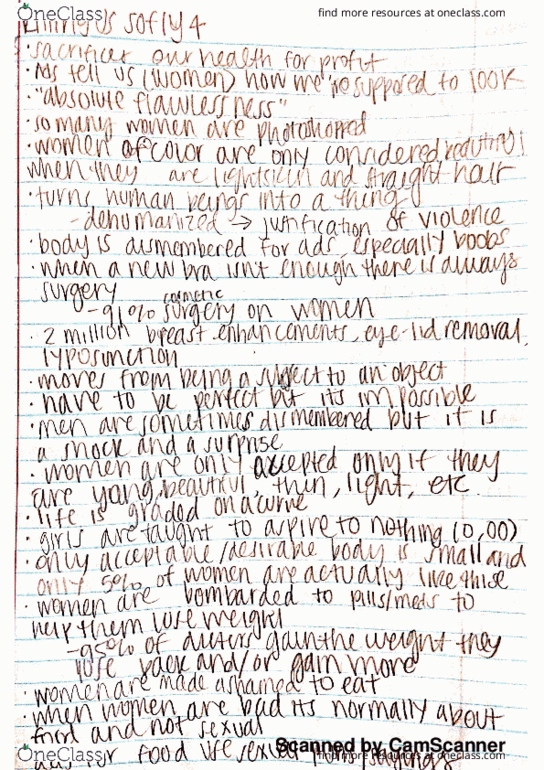 OneClass find more resources at oneclass.com
Killing Us Softly 4
· sacrifices our health for profit
· Ads tell us (women) how we're supposed to look
· "absolute flawlessness"
· so many women are photoshopped
· women of color are only considered beautiful
when they are lightskin and straight hair
· turns human beings into a thing
- dehumanized → justification of violence
· body is dismembered for ads, especially boobs
· when a new bra isn't enough there is always
surgery
- 91% cosmetic surgery on women
· 2 million breast enhancements, eye-lid removal,
lyposunction
· moves from being a subject to an object
· have to be perfect but its impossible
· men are sometimes dismembered but it is
a shock and a surprise
· women are only accepted only if they
are yong, beautiful, thin, light, etc.
· life is graded on a curve
· girls are taught to aspire to nothing (0,00)
· only acceptable/desirable body is small and
only 5% of women are actually like this
· women are bombarded to pills/meds to
help them lose weight
- 95% of dieters gain the weight they
lose back and/or gain more
· women are made ashamed to eat
· when women are bad its normally about
food and not sexual
food
Scanned by CamScanner
OneClass find more resources at oneclass.com